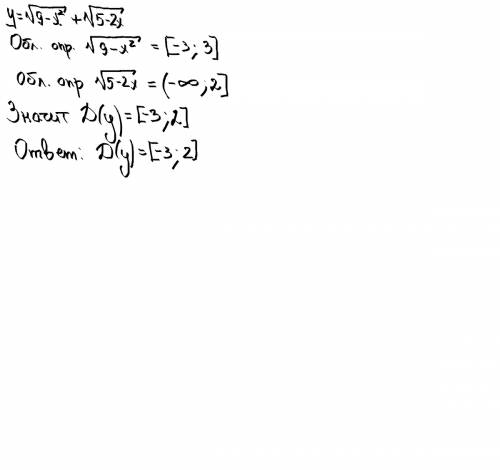 y=√9-x² + √5-2x
Обл. опр. √9-x² = [-3; 3]
Обл. опр √5-2x = (-∞; 2]
Значит D(y)=[-3; 2]
Ответ: D(y)=[-3; 2]